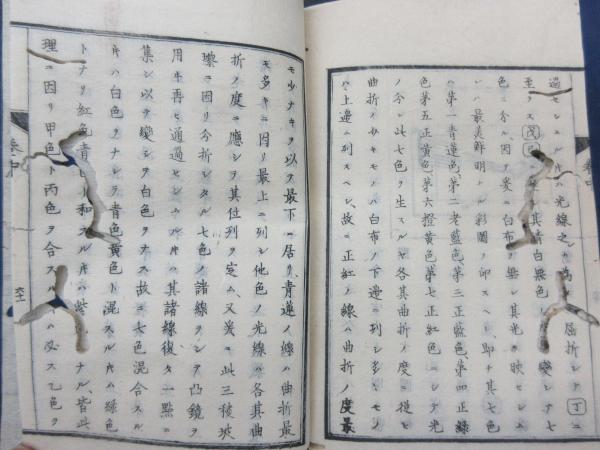 過セシムル片ハ光線之カ為メ屈折シテ丁ニ
至ラス戊 其清白無色 變シテ七
色ニ分ル因テ爰ニ白布ヲ垂レ其光ヲ映セシム
レハ最美鮮明ナル彩圖ヲ印スヘシ即チ其七色
ハ第一青蓮色、第二老藍色、第三正藍色、第四正綠
色第五正黄色第六橙黄色第七正紅色ニシテ光
ノ分レ此七色ヲ生スルヤ各其曲折ノ度ニ從ヒ
曲折ノ少キモノハ白布ノ下邊ニ列シ多キモノ
ハ上邊ニ列スヘシ、故ニ正紅ノ線ハ曲折ノ度最
モ少ナキヲ以ス最下ニ居リ、青蓮ノ線ハ曲折最
モ多キニ因リ最上ニ列シ他色ノ光線ハ各其曲
折ノ度ニ應シテ其位列ヲ定ム、又爰ニ此三稜玻
瓈ニ因リ分折シタル七色ノ諸線ヲシテ凸鏡ヲ
用ヰ再ヒ通過セシムル片ハ其諸線復タ一點ニ
集シ以テ變シテ白色ヲナス故ニ七色混合スル
片ハ白色ヲナシテ青色黄色ト混スル片ハ綠色
トナリ紅色青色ト和スル片ハ紫 ナル、皆此
理ニ因リ甲色ト丙色ヲ合スル片ハ必ス乙色ヲ